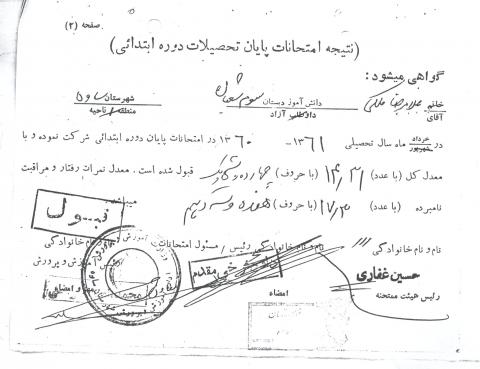 صفحه (۲)
(نتیجه امتحانات پایان تحصیلات دوره ابتدائی)
گواهی میشود:
خانم آقای غلامرضا ملکی دانش آموز دبستان داوطلب آزاد سوم شعبان شهرستان ساوه منطقه ناحیه
در خرداد شهریور ماه سال تحصیلی ۱۳۶۱-۱۳۶۰ در امتحانات پایان دوره ابتدائی شرکت نموده و با
معدل کل (با عدد) ۱۴/۳۱ (با حروف) چهارده و قبول شده است. معدل نمرات رفتار و مراقبت
نامبرده (با عدد) ۱۷/۳۰ (با حروف) هفده و میباشد
قبول
نام و نام خانوادگی نام و نام خانوادگی رئیس / مسئول امتحانات نام خانوادگی
آموزش و پرورش
حسین غفاری
رئیس هیئت ممتحنه امضاء مهر و امضاء